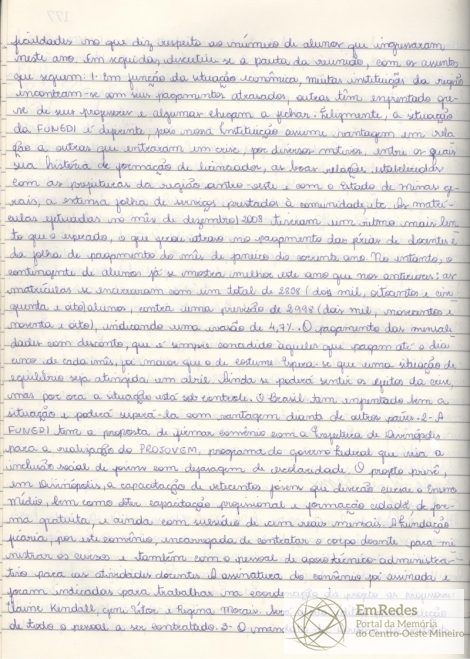 ficuldades no que diz respeito ao número de alunos que ingressaram
neste ano. Em seguida, discutiu-se a pauta da reunião, com os assuntos
que seguem: 1- Em função da situação econômica, muitas instituições da região
encontram-se com seus pagamentos atrasados, outras têm enfrentado gre-
ve de seus professores e algumas chegam a fechar. Felizmente, a situação
da FUNEDI é diferente, pois nossa Instituição assume vantagem em rela
ção a outras que entraram em crise, por diversos motivos, entre os quais
sua história de formação de licenciados, as boas relações estabelecidas
com as prefeituras da região centro-oeste e com o Estado de Minas Ge-
rais, a extensa folha de serviços prestados à comunidade, etc. As matrí-
culas efetuadas no mês de dezembro/2008 tiveram um ritmo mais len
to que o esperado, o que gerou atraso no pagamento das férias de docentes e
da folha de pagamento do mês de janeiro do corrente ano. No entanto, o
contingente de alunos já se mostra melhor este ano que nos anteriores: as
matrículas se encerraram com um total de 2858 (dois mil, oitocentos e cin
quenta e oito) alunos, contra uma previsão de 2998 (dois mil, novecentos e
noventa e oito), indicando uma evasão de 4,7%. O pagamento das mensali-
dades com desconto, que é sempre concedido àqueles que pagam até o dia
cinco de cada mês, foi maior que o de costume. Espera-se que uma situação de
equilíbrio seja atingida em abril. Ainda se poderá sentir os efeitos da crise,
mas por ora a situação está sob controle. O Brasil tem enfrentado bem a
situação e poderá superá-la com vantagem diante de outros países. 2- A
FUNEDI tem a proposta de firmar convênio com a Prefeitura de Divinópolis
para a realização do PROJOVEM, programa do governo federal que visa a
inclusão social de jovens com defasagem de escolaridade. O projeto prevê,
em Divinópolis, a capacitação de setecentos jovens que deverão cursar o Ensino
Médio, bem como obter capacitação profissional e formação cidadã, de for-
ma gratuita, e ainda com subsídio de cem reais mensais. A Fundação
ficaria, por este convênio, encarregada de contratar o corpo docente para mi
nistrar os cursos e também com o pessoal de apoio técnico-administra-
tivo para as atividades docentes. A assinatura do convênio foi assinada e
foram indicados para trabalhar na coordenação do projeto os professores:
Elaine Kendall, Vítor e Regina Morais.
de todo o pessoal a ser contratado. 3- O
EmRedes
Portal da Memória
do Centro-Oeste Mineiro